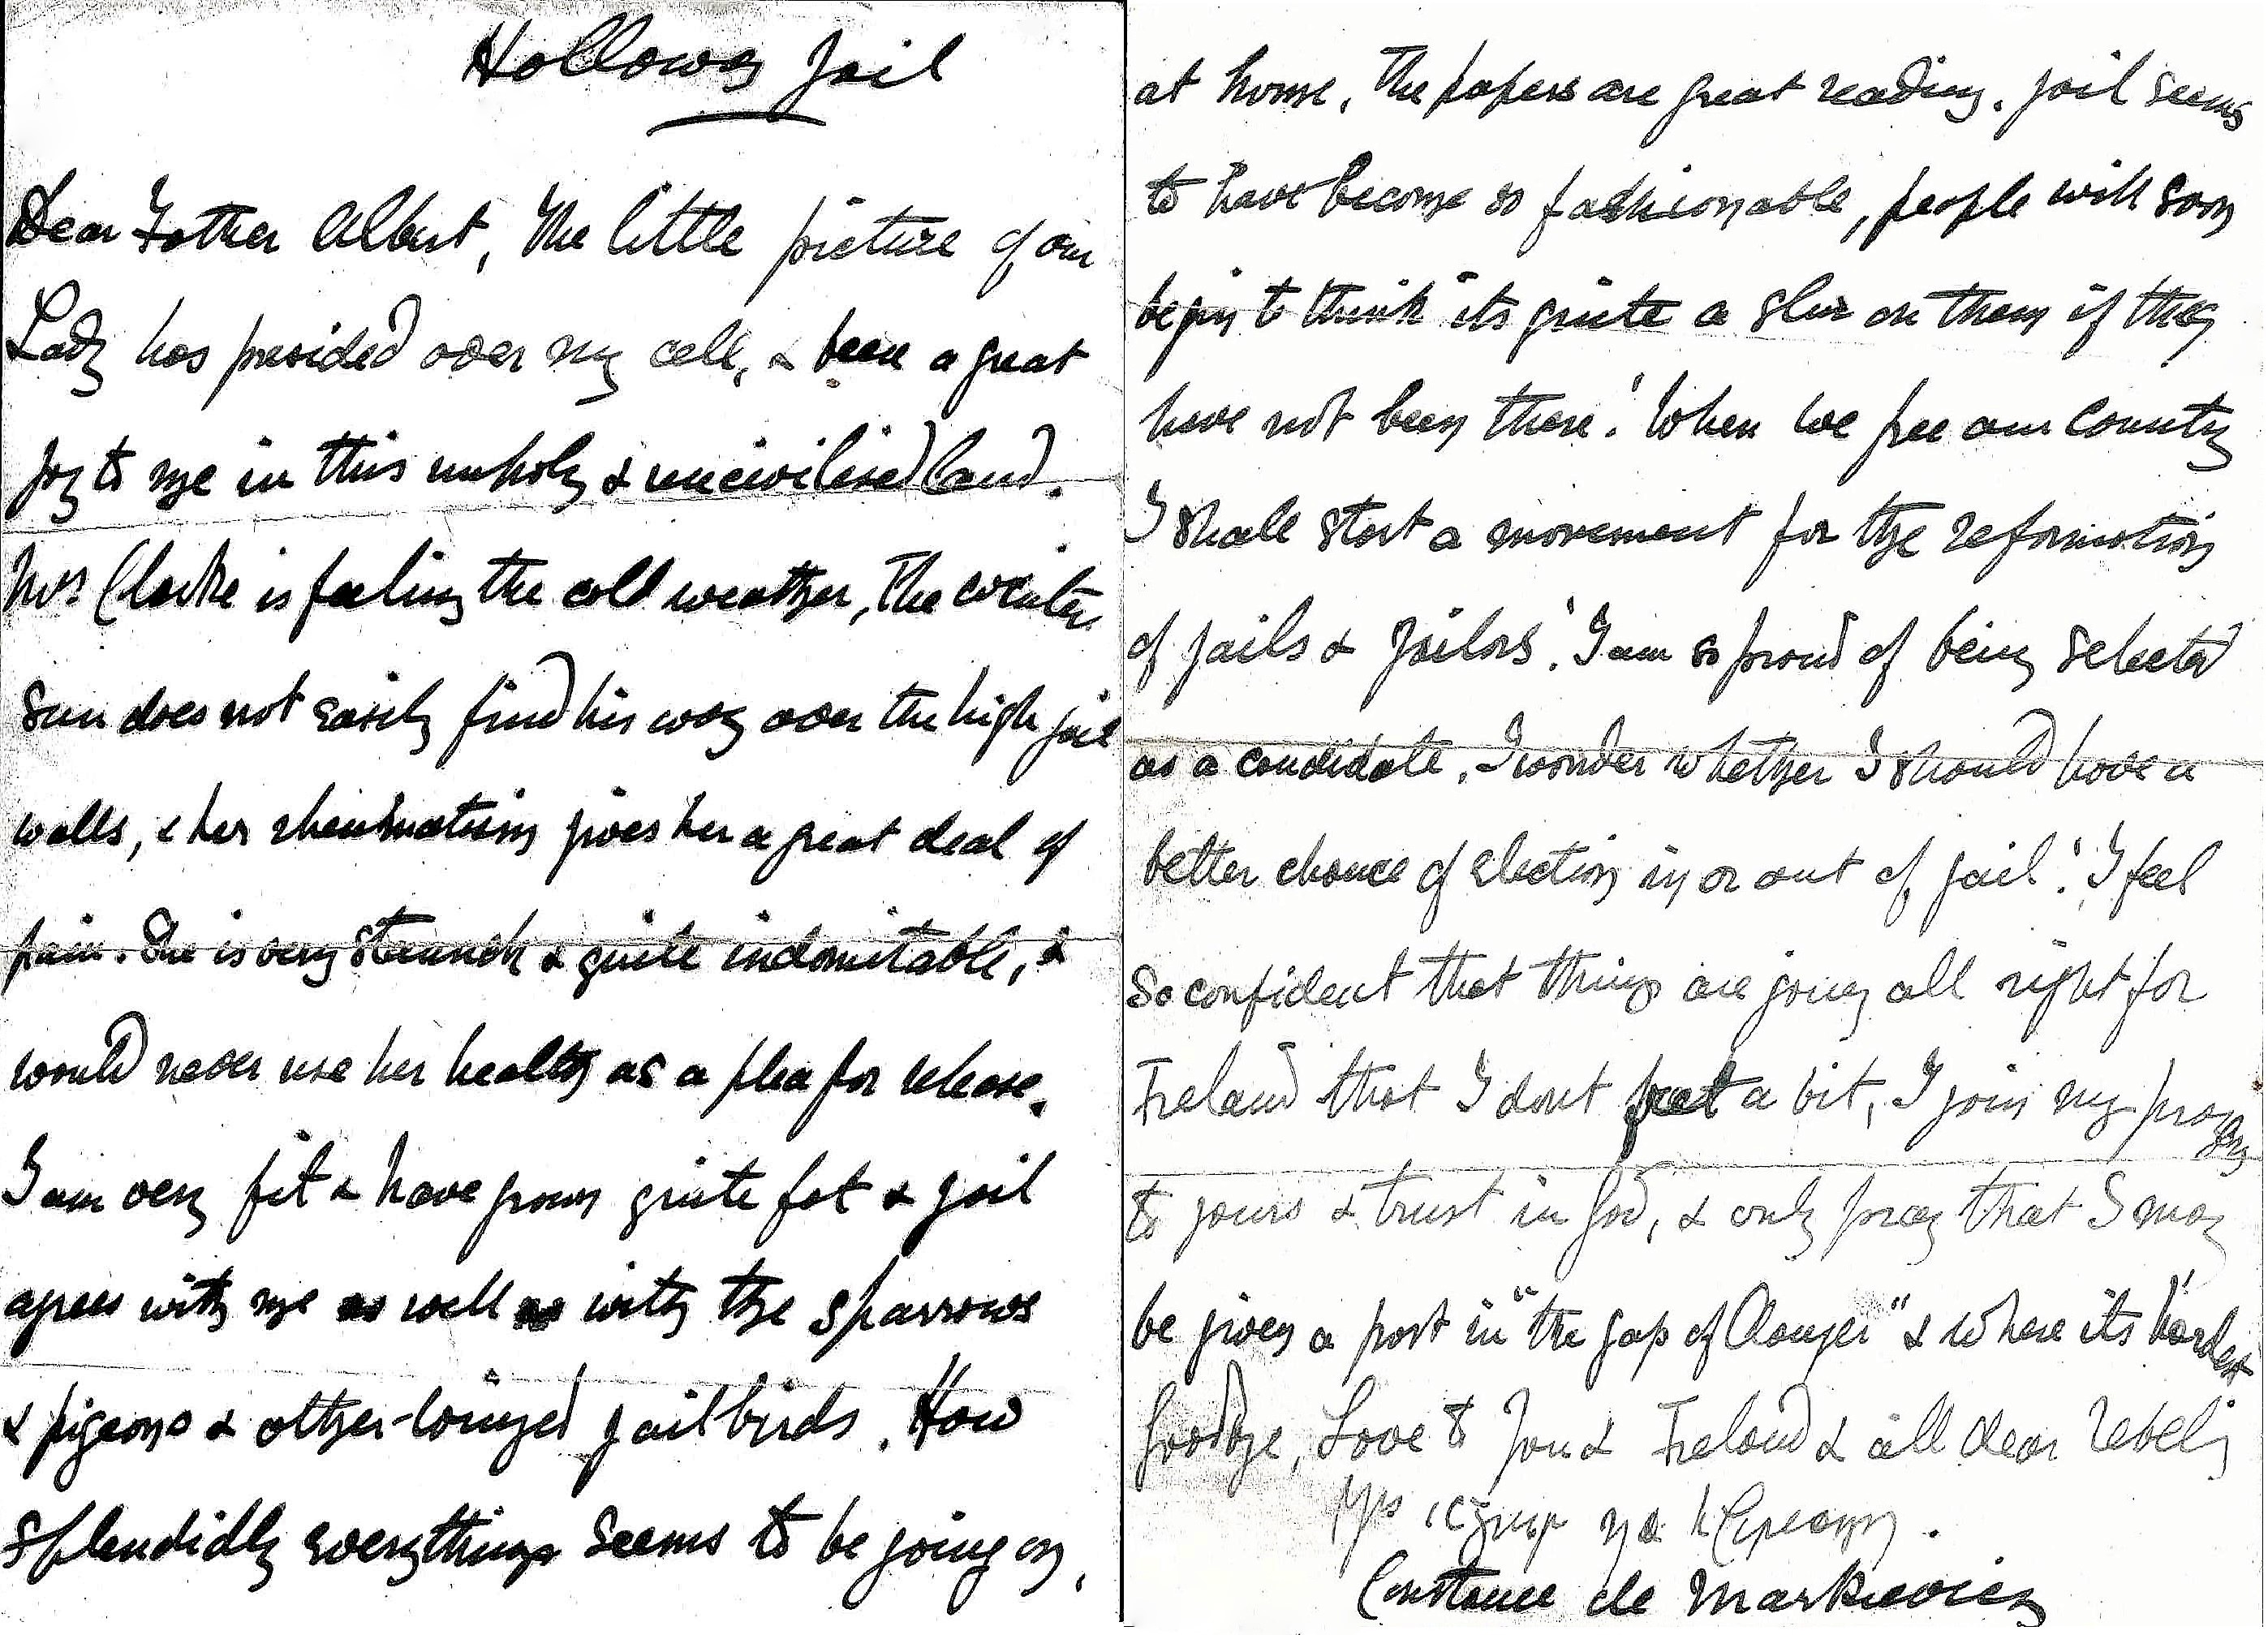 Holloway Jail
Dear Father Albert, The little picture of our
Lady has presided over my cell, & been a great
joy to me in this unholy & uncivilised land.
Mrs Clarke is feeling the cold weather, The winter
sun does not easily find his way over the high jail
walls, & her rheumatism gives her a great deal of
pain. She is very staunch & quite indomitable, &
would never use her health as a plea for release.
I am very fit & have grown quite fat & jail
agrees with me as well as with the sparrows
& pigeons & other-winged jailbirds. How
splendidly everything seems to be going on,
at home, The papers are great reading. Jail seems
to have become so fashionable, people will soon
begin to think its quite a slur on them if they
have not been there! When we free our country
I shall start a movement for the reformation
of jails & jailors! I am so proud of being selected
as a candidate, I wonder whether I should have a
better chance of election in or out of jail! I feel
so confident that things are going all right for
Ireland that I dont fret a bit, I join my prayers
to yours & trust in God, & only pray that I may
be given a post in "the gap of danger" & where its hardest
Goodbye, Love to you & Ireland & all dear rebels
na h
Constance de Markievicz